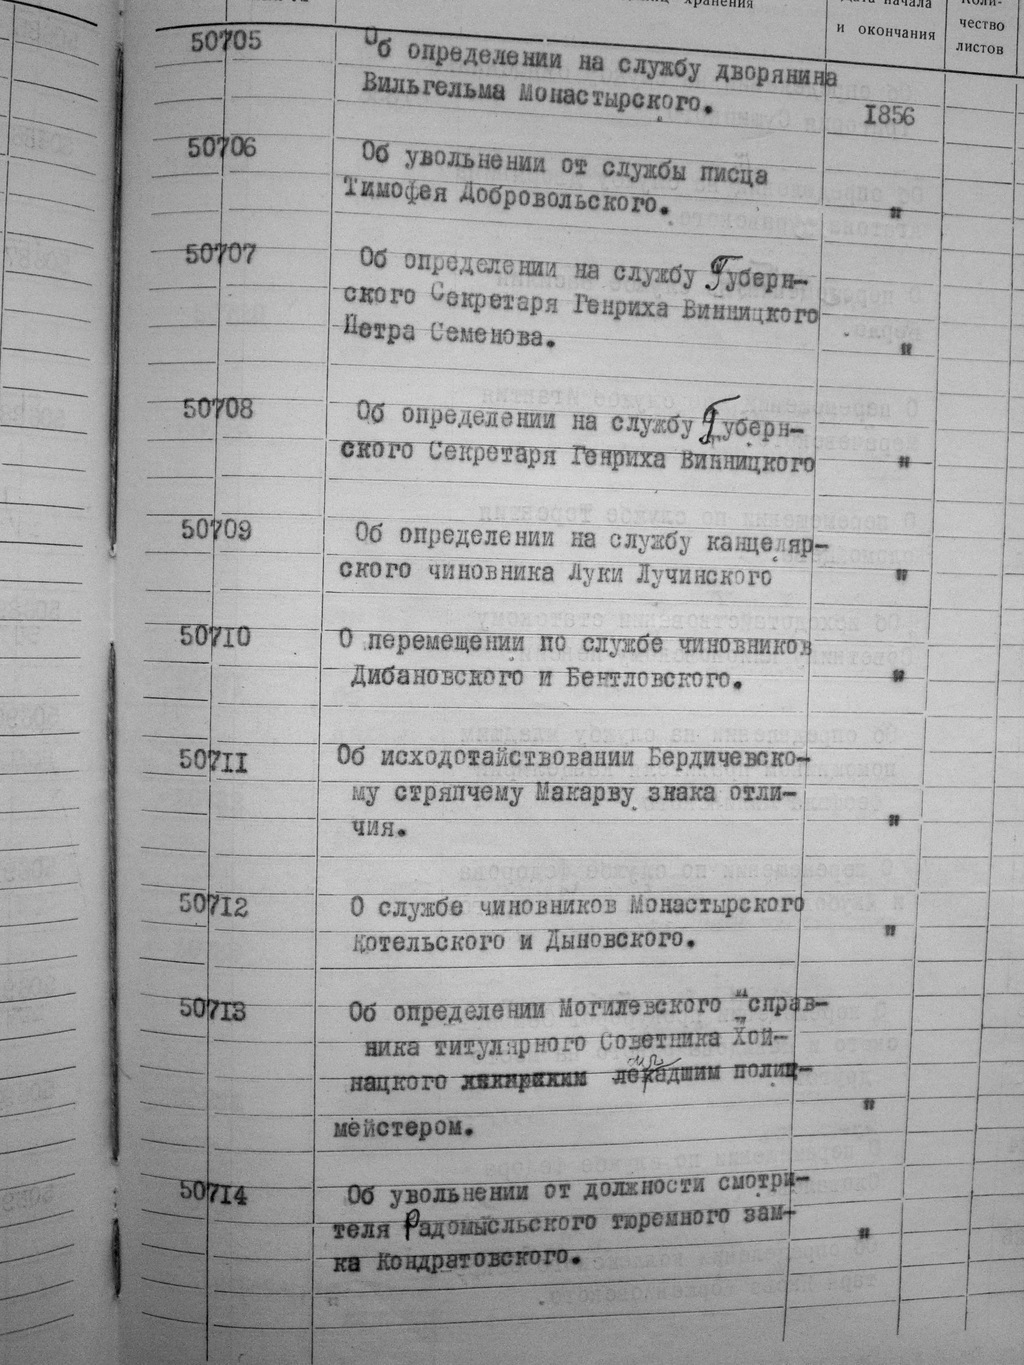 хранения
Дата начала
и окончания
Коли-
чество
листов
50705 Об определении на службу дворянина
Вильгельма Монастырского. 1856
50706 Об увольнении от службы писца
Тимофея Добровольского. "
50707 Об определении на службу Губерн-
ского Секретаря Генриха Винницкого
Петра Семенова. "
50708 Об определении на службу Губерн-
ского Секретаря Генриха Винницкого "
50709 Об определении на службу канцеляр-
ского чиновника Луки Лучинского "
50710 О перемещении по службе чиновников
Дибановского и Бентловского. "
50711 Об исходотайствовании Бердичевско-
му стряпчему Макарву знака отли-
чия. "
50712 О службе чиновников Монастырского
Котельского и Дыновского. "
50713 Об определении Могилевского "справ-
ника титулярного Советника Хой-
нацкого полиц-
мейстером. "
50714 Об увольнении от должности смотри-
теля Радомысльского тюремного зам-
ка Кондратовского. "